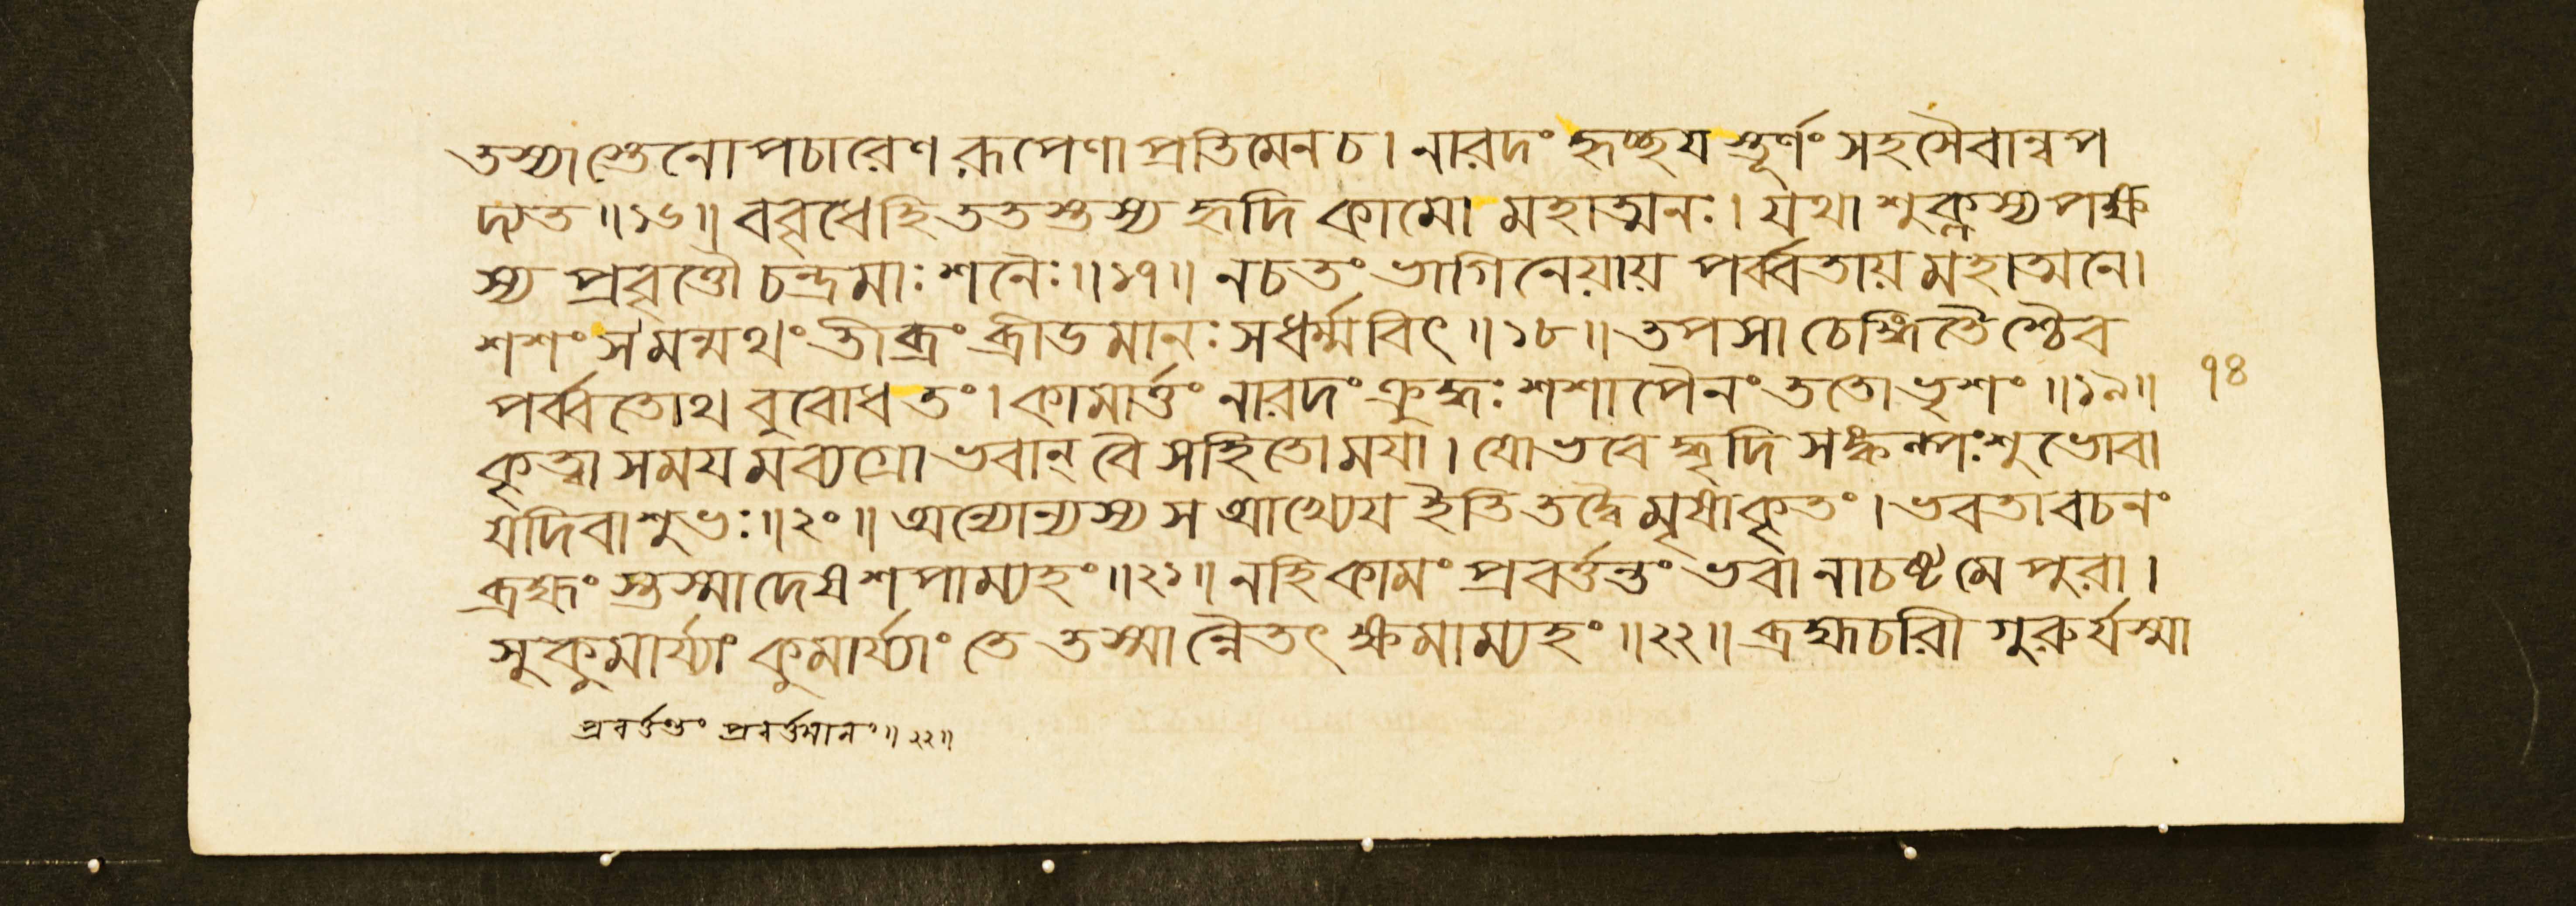 তস্যাস্তেনোপচারেণ রূপেণাপ্রতিমেনচ। নারদং হৃচ্ছয স্তূর্ণং সহসৈবান্বপ
দ্যত॥১৬॥ ববৃধেহি ততস্তস্য হৃদি কামো মহাত্মনঃ। যথা শুক্লস্য পক্ষ
স্য প্রবৃত্তৌ চন্দ্রমাঃ শনৈঃ॥১৭॥ নচতং ভাগিনেয়ায় পর্ব্বতায় মহাত্মনে।
শশংস মন্মথং তীব্রং ব্রীডমানঃ সধর্ম্মবিৎ॥১৮॥ তপসা চেঙ্গিতৈশ্চৈব
পর্ব্বতোথ বুবোধ তং। কামার্ত্তং নারদং ক্রুদ্ধঃ শশাপৈনং ততো ভৃশং॥১৯॥
কৃত্বা সময মব্যগ্রো ভবান্ বৈ সহিতো ময়া। যোভবে দ্ধৃদি সঙ্কল্পঃ শুভোবা
যদিবাশুভঃ॥২০॥ অন্যোন্যস্য স আখ্যেয ইতি তদ্বৈ মৃষাকৃতং। ভবতা বচনং
ব্রহ্মং স্তস্মাদেষ শপাম্যহং॥২১॥ নহি কামং প্রবর্ত্তন্তং ভবা নাচষ্ট মে পুরা।
সুকুমার্য্যাং কুমার্য্যাং তে তস্মান্নৈতৎ ক্ষমাম্যহং॥২২॥ ব্রহ্মচরী গুরুর্যস্মা
৭৪
প্রবর্ত্তন্তং প্রবর্ত্তমানং॥২২॥